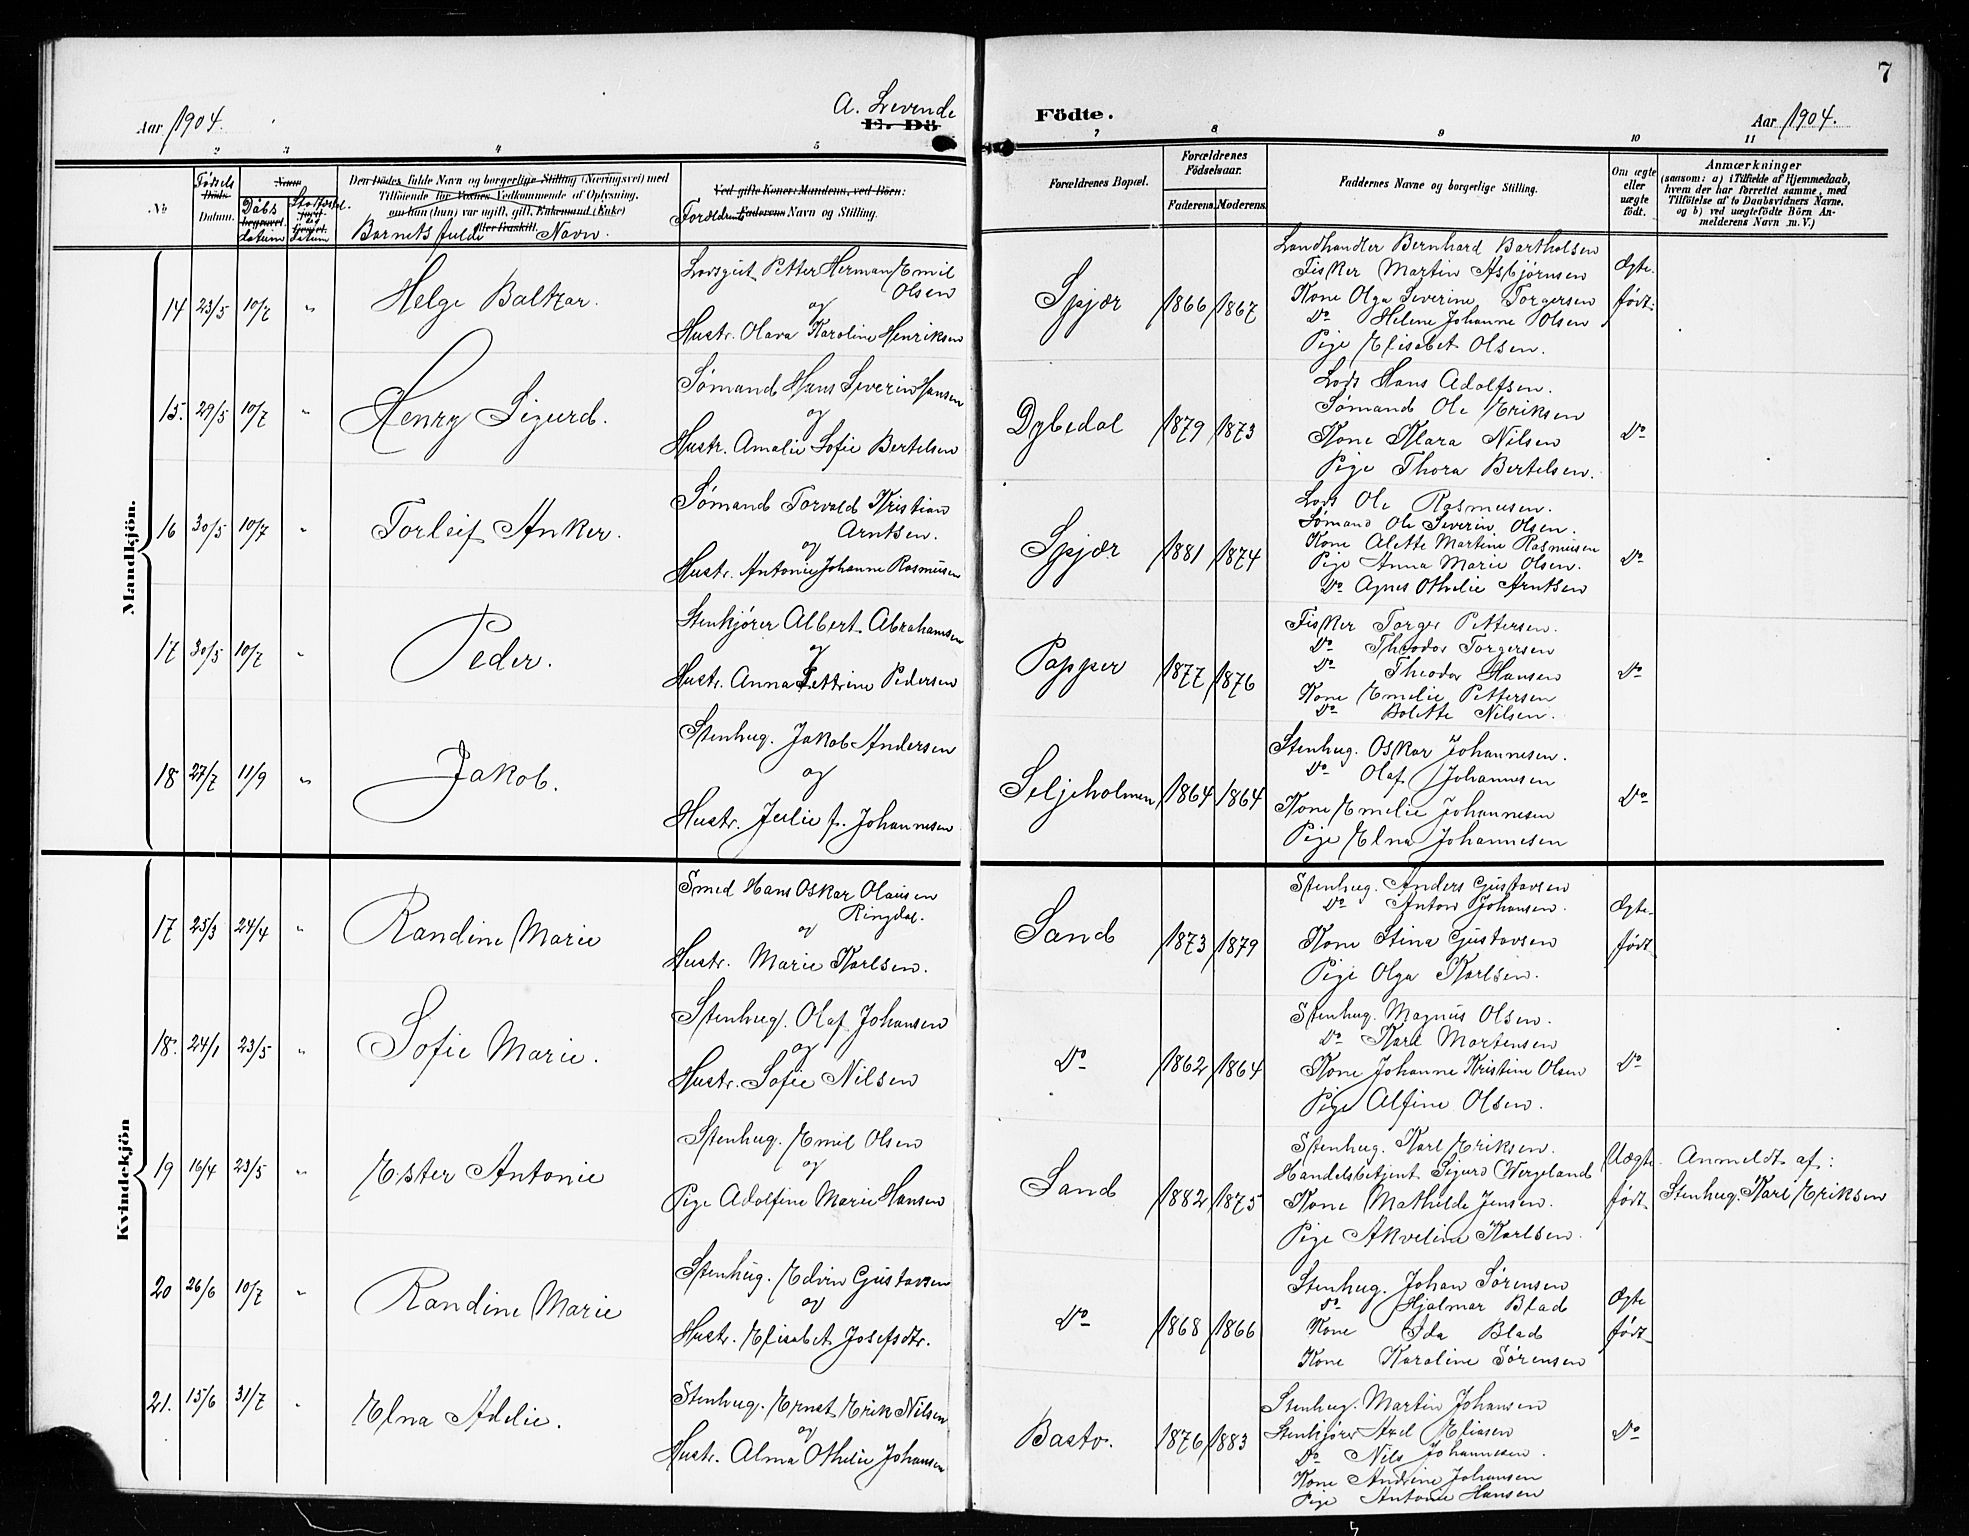 7
Aar 1904.
A. Levende
E. Dö Födte.
Aar 1904.
2 3 4 5 7 8 9 10 11
No
Fødsels
Døds
Datum.
Naar
Døbs
begravet
datum
Stadfæstd.
jord-
fæstet.
datum
Den Dödes fulde Navn og borgerlige Stilling (Næringsvei) med
Tilföiende for Voxnes Vedkommende af Oplysning,
om han (hun) var ugift, gift, Enkemand (Enke)
eller fraskilt.
Barnets fulde Navn.
Ved gifte Koner: Mandens, ved Börn:
Forældrenes Faderens Navn og Stilling.
Forældrenes Bopæl.
Forældrenes
Födselsaar.
Faderens. Moderens.
Faddernes Navne og borgerlige Stilling.
Om ægte
eller
uægte
födt.
Anmærkninger
(saasom: a) i Tilfælde af Hjemmedaab,
hvem der har forrettet samme, med
Tilföielse af to Daabsvidners Navne,
og b) ved uægtefödte Börn An-
melderens Navn m. V.)
Mandkjön.
14 23/5 10/7 "
Helge Baltzar.
Lodsgut Petter Herman Emil
Olsen
og
Hustr. Olava Karoline Henriksen
Spjær 1866 1867
Landhandler Bernhard Bartholsen
Fisker Martin Asbjørnsen
Kone Olga Severine Torgersen
Do Helene Johanne Olsen
Pige Elisabet Olsen.
Ægte-
født.
15. 29/5 10/7 "
Henry Sigurd.
Sømand Hans Severin Hansen
og
Hustr. Amalie Sofie Bertelsen
Dybedal 1879 1873
Lods Hans Adolfsen.
Sømand Ole Eriksen
Kone Klara Nilsen
Pige Thora Bertelsen.
Do
16 30/5 10/7 "
Torleif Anker.
Sømand Torvald Kristian
Arntsen.
og
Hustr. Antonie Johanne Rasmusen
Spjær 1881 1874
Lods Ole Rasmusen.
Sømand Ole Severin Olsen.
Kone Alette Martine Rasmusen
Pige Anna Marie Olsen.
Do Agnes Othelie Arntsen
Do
17 30/5 10/7 "
Peder.
Stenkjører Albert Abrahamsen
og
Hustr. Anna Pettrine Pedersen
Papper 1877 1876
Fisker Torger Pettersen.
Do Theodor Torgersen
Do Theodor Hansen
Kone Emelie Pettersen
Do Bolette Nilsen.
Do
18 27/7 11/9 "
Jakob.
Stenhug. Jakob Andersen
og
Hustr. Julie f. Johannesen
Seljeholmen 1864 1864
Stenhug. Oskar Johannesen.
Do Olaf Johannesen
Kone Emelie Johannesen
Pige Elna Johannesen
Do
Kvindekjön
17 25/3 24/4 "
Randine Marie
Smed Hans Oskar Olausen
Ringdal.
og
Hustr. Marie Karlsen.
Sand 1873 1879
Stenhug. Anders Gustavsen
Do Anton Johansen.
Kone Stina Gustavsen
Pige Olga Karlsen.
Ægte-
født
18. 24/1 23/5 "
Sofie Marie.
Stenhug. Olaf Johansen
og
Hustr. Sofie Nilsen
Do 1862 1864
Stenhug. Magnus Olsen.
Do Karl Mortensen
Kone Johanne Kristine Olsen
Pige Alfine Olsen.
Do
19 16/4 23/5 "
Ester Antonie
Stenhug. Emil Olsen
og
Pige Adolfine Marie Hansen
Sand 1882 1875
Stenhug. Karl Eriksen.
Handelsbetjent Sigurd Wergeland
Kone Mathilde Jensen.
Pige Akveline Karlsen.
Uægte-
født
Anmeldt af:
Stenhug. Karl Eriksen
20 26/6 10/7 "
Randine Marie
Stenhug. Edvin Gustavsen
og
Hustr. Elisabet Josefsdtr.
Do 1868 1866
Stenhug. Johan Sørensen
Do Hjalmar Blad
Kone Ida Blad
Kone Karoline Sørensen
Ægte
født
21. 15/6 31/7 "
Elna Adelie.
Stenhug. Ernst Erik Nilsen
og
Hustr. Alma Othelie Johansen
Bastø. 1876 1883
Stenhug. Martin Johansen
Stenkjører Axel Eliasen
Do Nils Johannesen.
Kone Andrine Johansen
Pige Antonie Hansen
Do